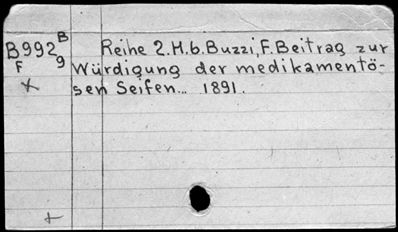 B992 B Reihe 2.H.6.Buzzi, F. Beitrag zur
F 9 Würdigung der medikamentö-
x sen Seifen... 1891.
+